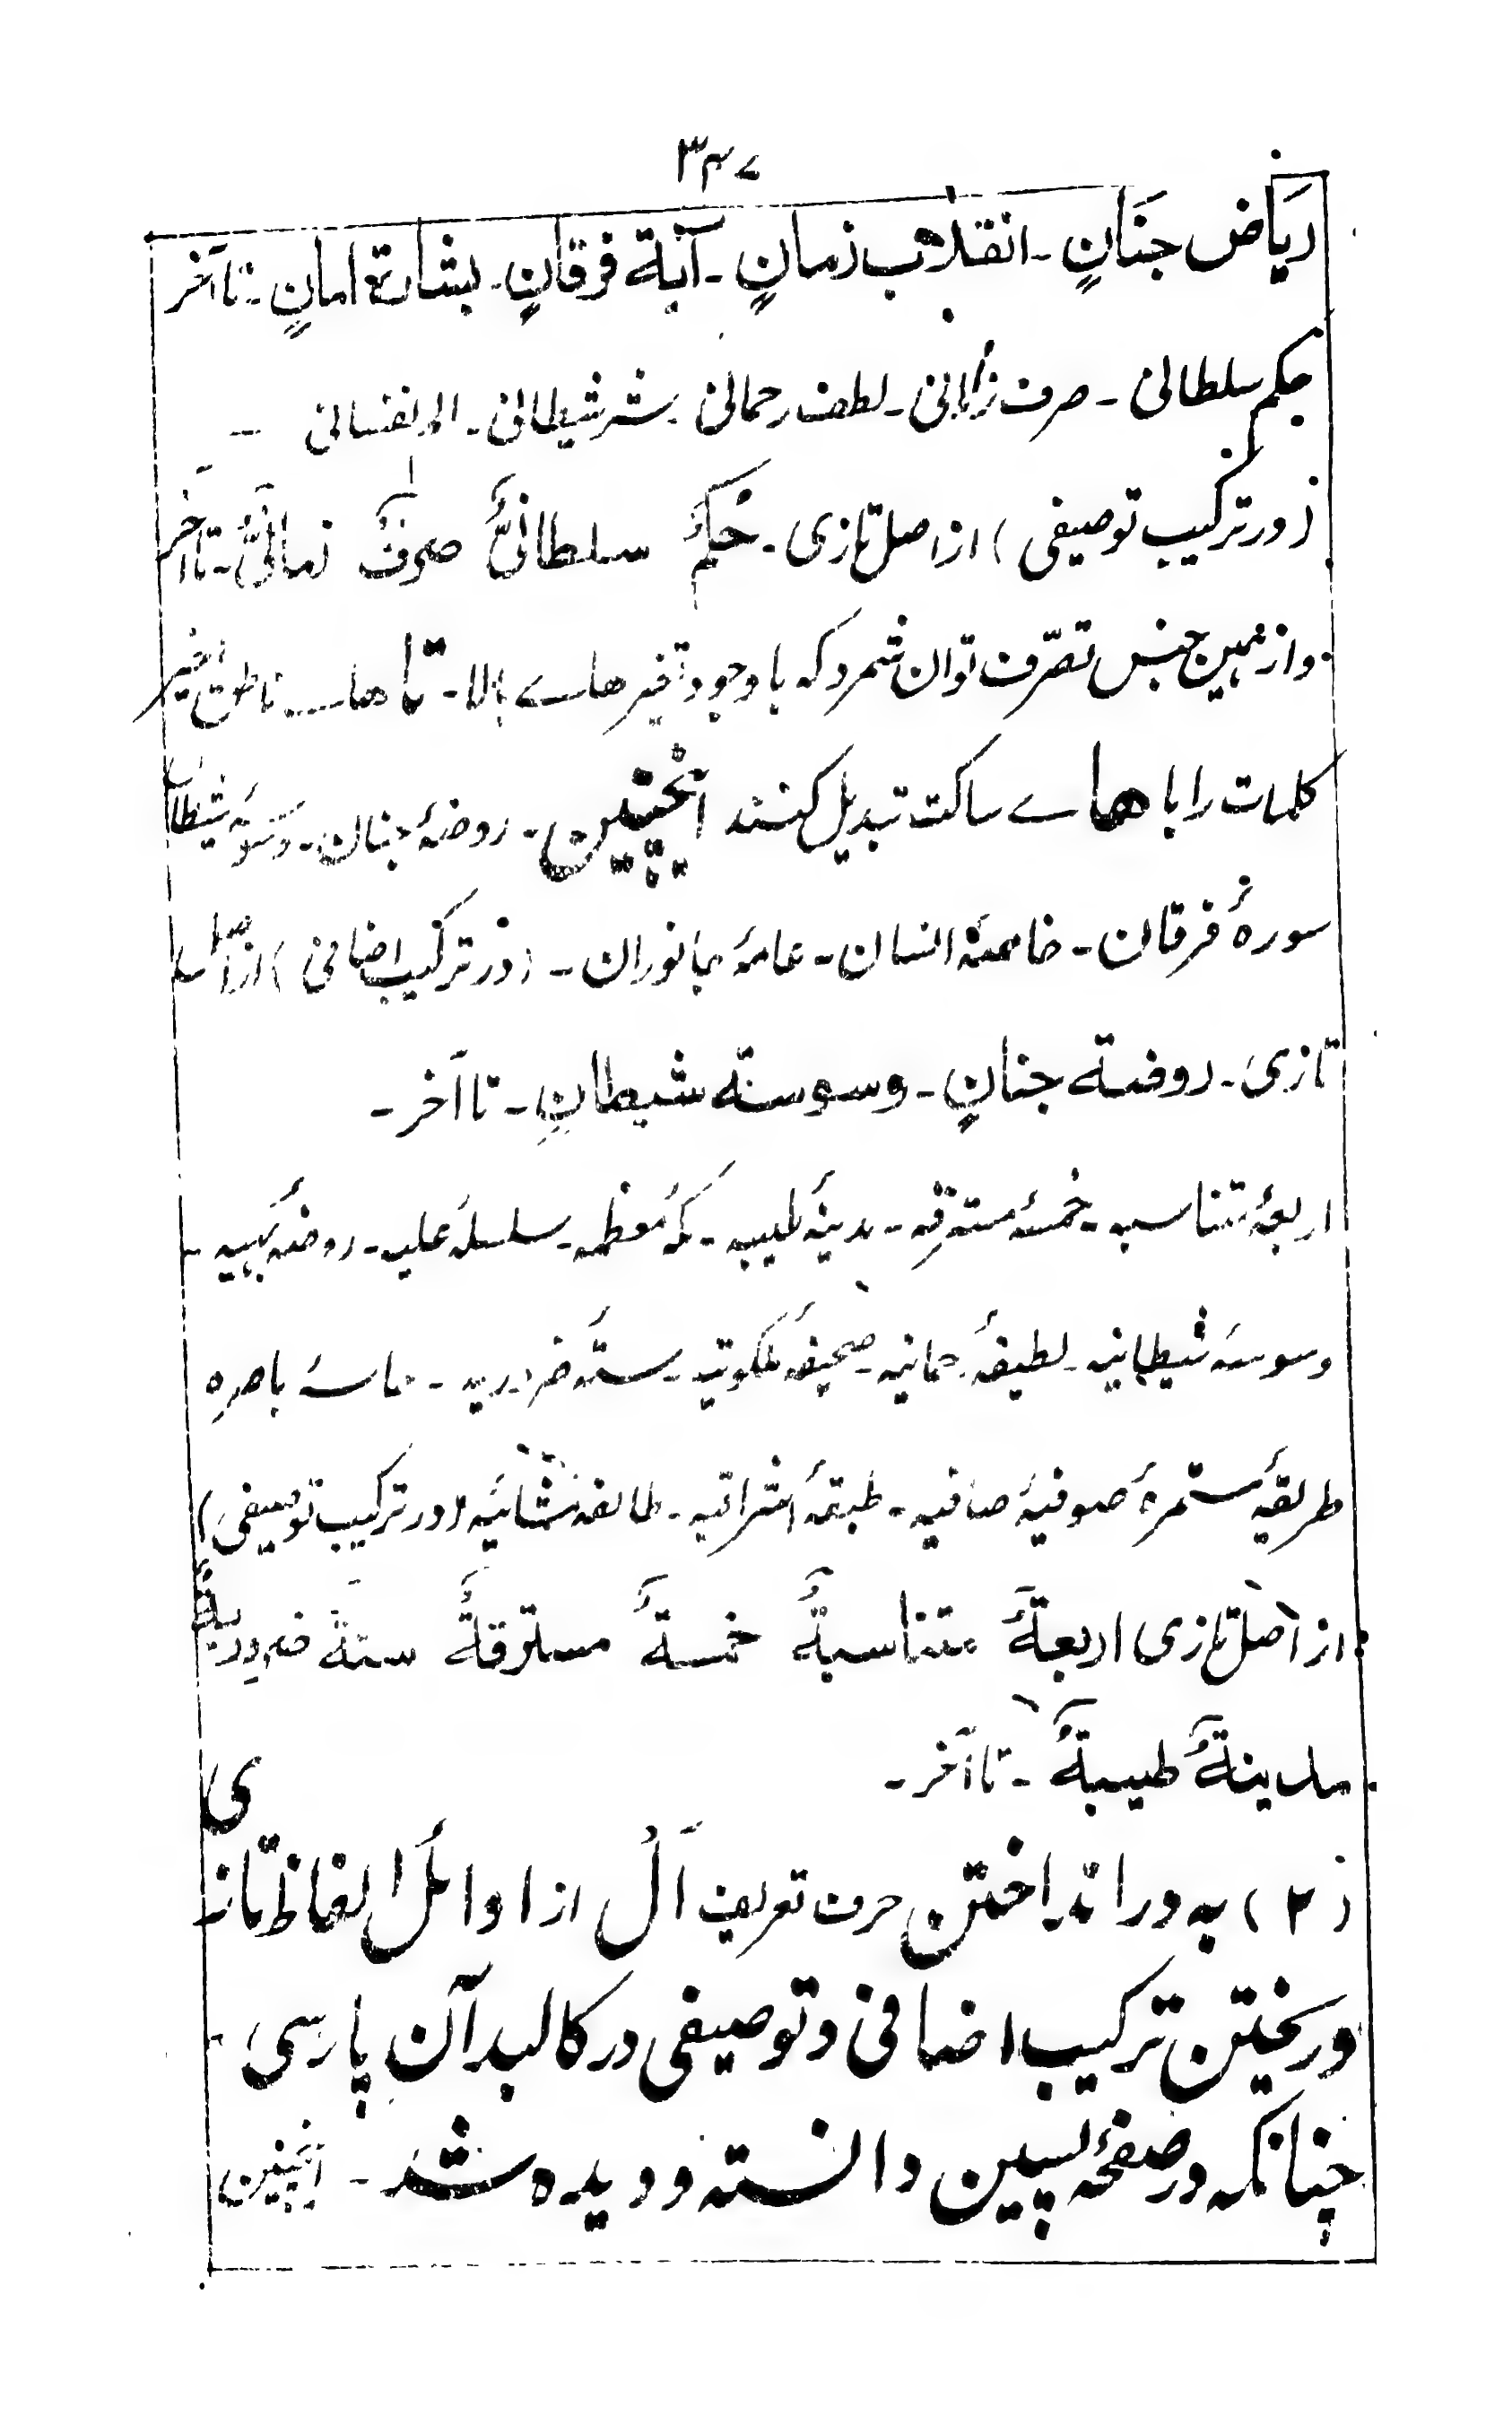 ٣٤٧
رِیَاضُ جَنَانٍ - انقلاب زمانٍ - آیة فرقانٍ - بشارة امانٍ - تا آخر
حکم سلطانی - صرف زمانی - لطف رحمانی - شر شیطانی - الم نفسانی -
(در ترکیب توصیفی) از اصل تازی - حُکمٌ سلطانیٌّ صرفٌ زمانیٌّ - تا آخر
و از همین جنس تصرّف توان شمرد که با وجود تغیر هاے بالا - تا هاے ناطق اخیر
کلمات را با هاے ساکت تبدیل کنند اینچنین - روضۂ جنان - وسوسۂ شیطان
سورۂ فرقان - خاصۂ انسان - عامۂ جانوران - (در ترکیب اضافی) از اصل
تازی - روضة جنانٍ - وسوسة شیطانٍ - تا آخر -
اربعۂ متناسبه - خمسۂ مسترقه - مدینۂ طیبه - مکۂ معظمه - سلسلۂ علیه - روضۂ بهیه -
وسوسۂ شیطانیه - لطیفۂ رحمانیه - صحیفۂ ملکوتیه - ستۂ ضروریه - حاسۂ باصره
طریقۂ مستمرۂ صوفیۂ صافیه - طبقۂ اشراقیه - طائفۂ مشائیه (در ترکیب توصیفی)
از اصل تازی اربعةٌ متناسبةٌ خمسةٌ مسترقةٌ ستةٌ ضروریةٌ
مدینةٌ طیبةٌ - تا آخر -
(٢) به دور انداختن حرف تعریف اَلْ از اوائل الفاظ تازی
و ریختن ترکیب اضافی و توصیفی در کالبد آن پارسی -
چنانکه در صفحۂ پسین دانسته و دیده شد - اینچنین